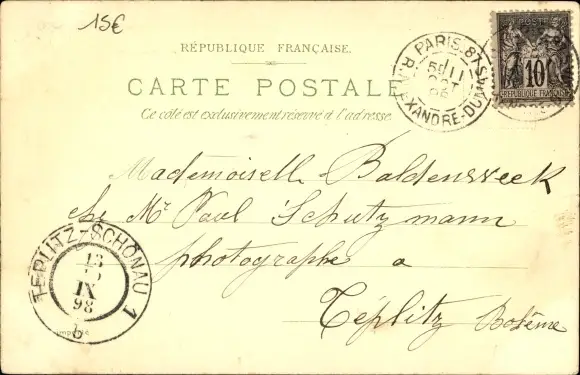 15€
RÉPUBLIQUE FRANÇAISE.
CARTE POSTALE
Ce côté est exclusivement réservé à l'adresse.
PARIS. 87
R. ALEXANDRE-DUMAS
5E
98
POSTES
10
RÉPUBLIQUE FRANÇAISE
Mademoiselle Baldensveek
che Mr Paul Schutzmann
photographe a
Téplitz Bohême
TEPLITZ-SCHÖNAU 1
13
IX
98